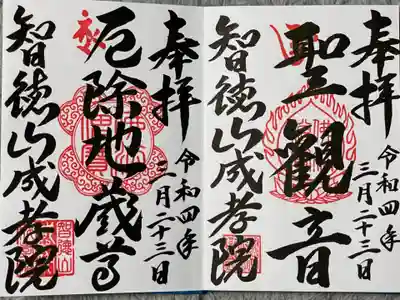 奉拝
令和四年
三月二十三日
聖観音
智徳山成孝院
奉拝
令和四年
三月二十三日
厄除地蔵尊
智徳山成孝院